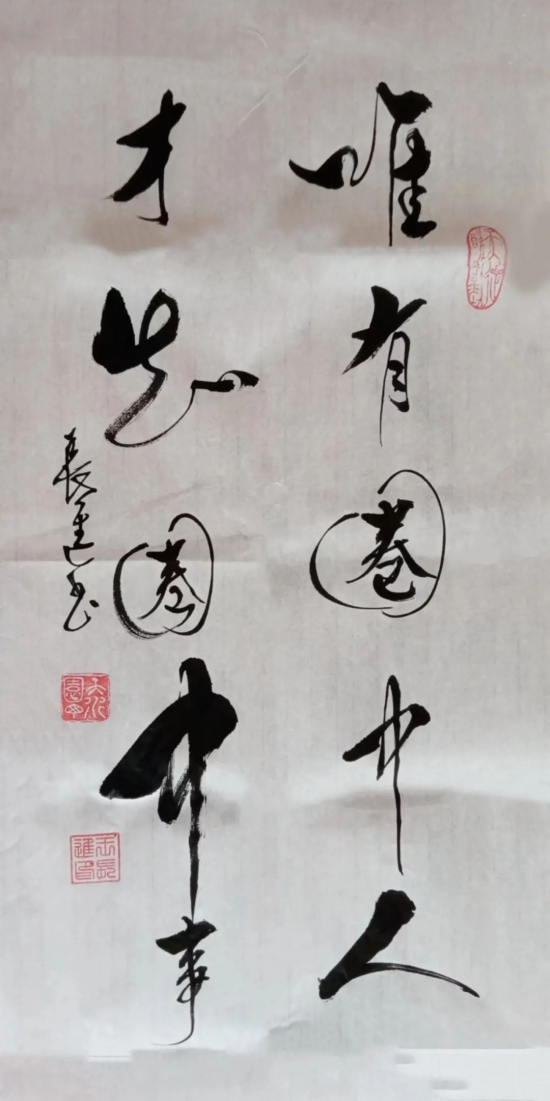 唯有圈中人
才知圈中事
長進书